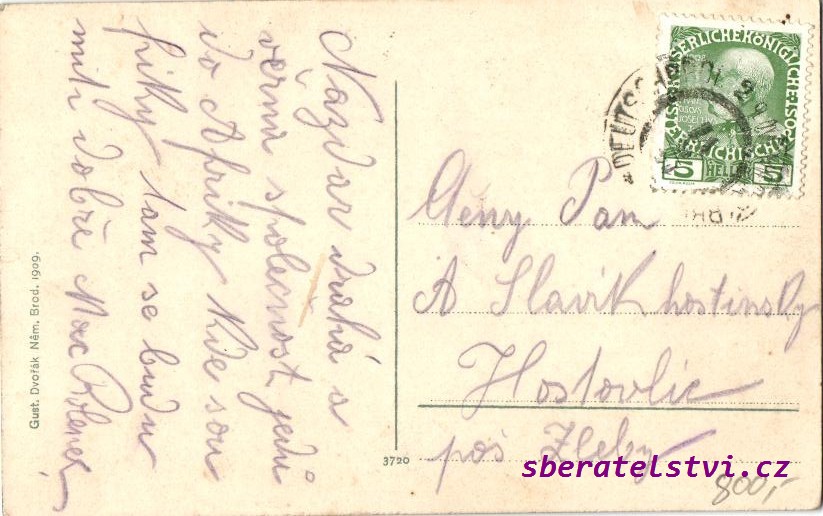 Nazdar drahá a
věrná společnost jedu
do Afriky kde sou
fiky tam se budu
míti dobře Max
Gust. Dvořák Něm. Brod. 1909.
3720
KAISERLICHE KÖNIGLICHE
ÖSTERREICHISCHE
5 HELLER 5
DEUTSCHBROD
Pan
A Slavík hostinský
Hostovlic
poš Žleby
800,-
sberatelstvi.cz